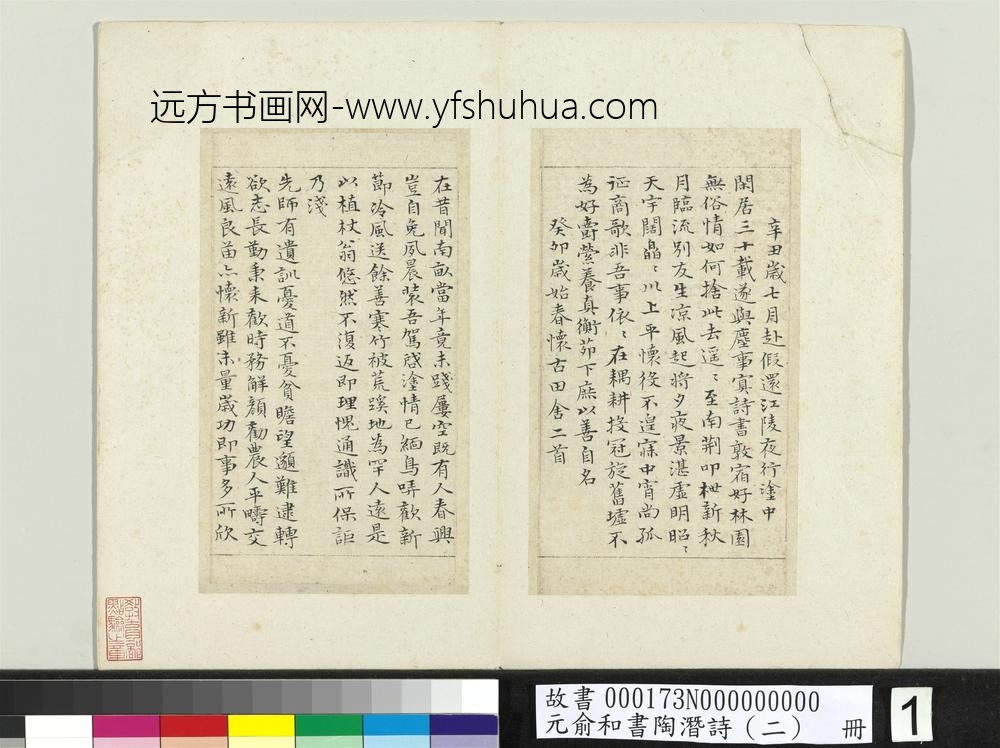 远方书画网-www.yfshuhua.com
辛丑歲七月赴假還江陵夜行塗中
閑居三十載遂與塵事冥詩書敦宿好林園
無俗情如何捨此去遥〻至南荆叩枻新秋
月臨流别友生凉風起將夕夜景湛虛明昭〻
天宇闊皛〻川上平懷役不遑寐中宵尚孤
征商歌非吾事依〻在耦耕投冠旋舊墟不
為好爵縈養真衡茆下庶以善自名
癸卯歲始春懷古田舍二首
在昔聞南畝當年竟未踐屢空既有人春興
豈自免夙晨裝吾駕啓塗情已緬鳥哢歡新
節冷風送餘善寒竹被荒蹊地為罕人遠是
以植杖翁悠然不復返即理愧通識所保詎
乃淺
先師有遺訓憂道不憂貧瞻望邈難逮轉
欲志長勤秉耒歡時務解顏勸農人平疇交
遠風良苗亦懷新雖未量歲功即事多所欣
故書 000173N000000000
元俞和書陶潛詩（二） 冊
1